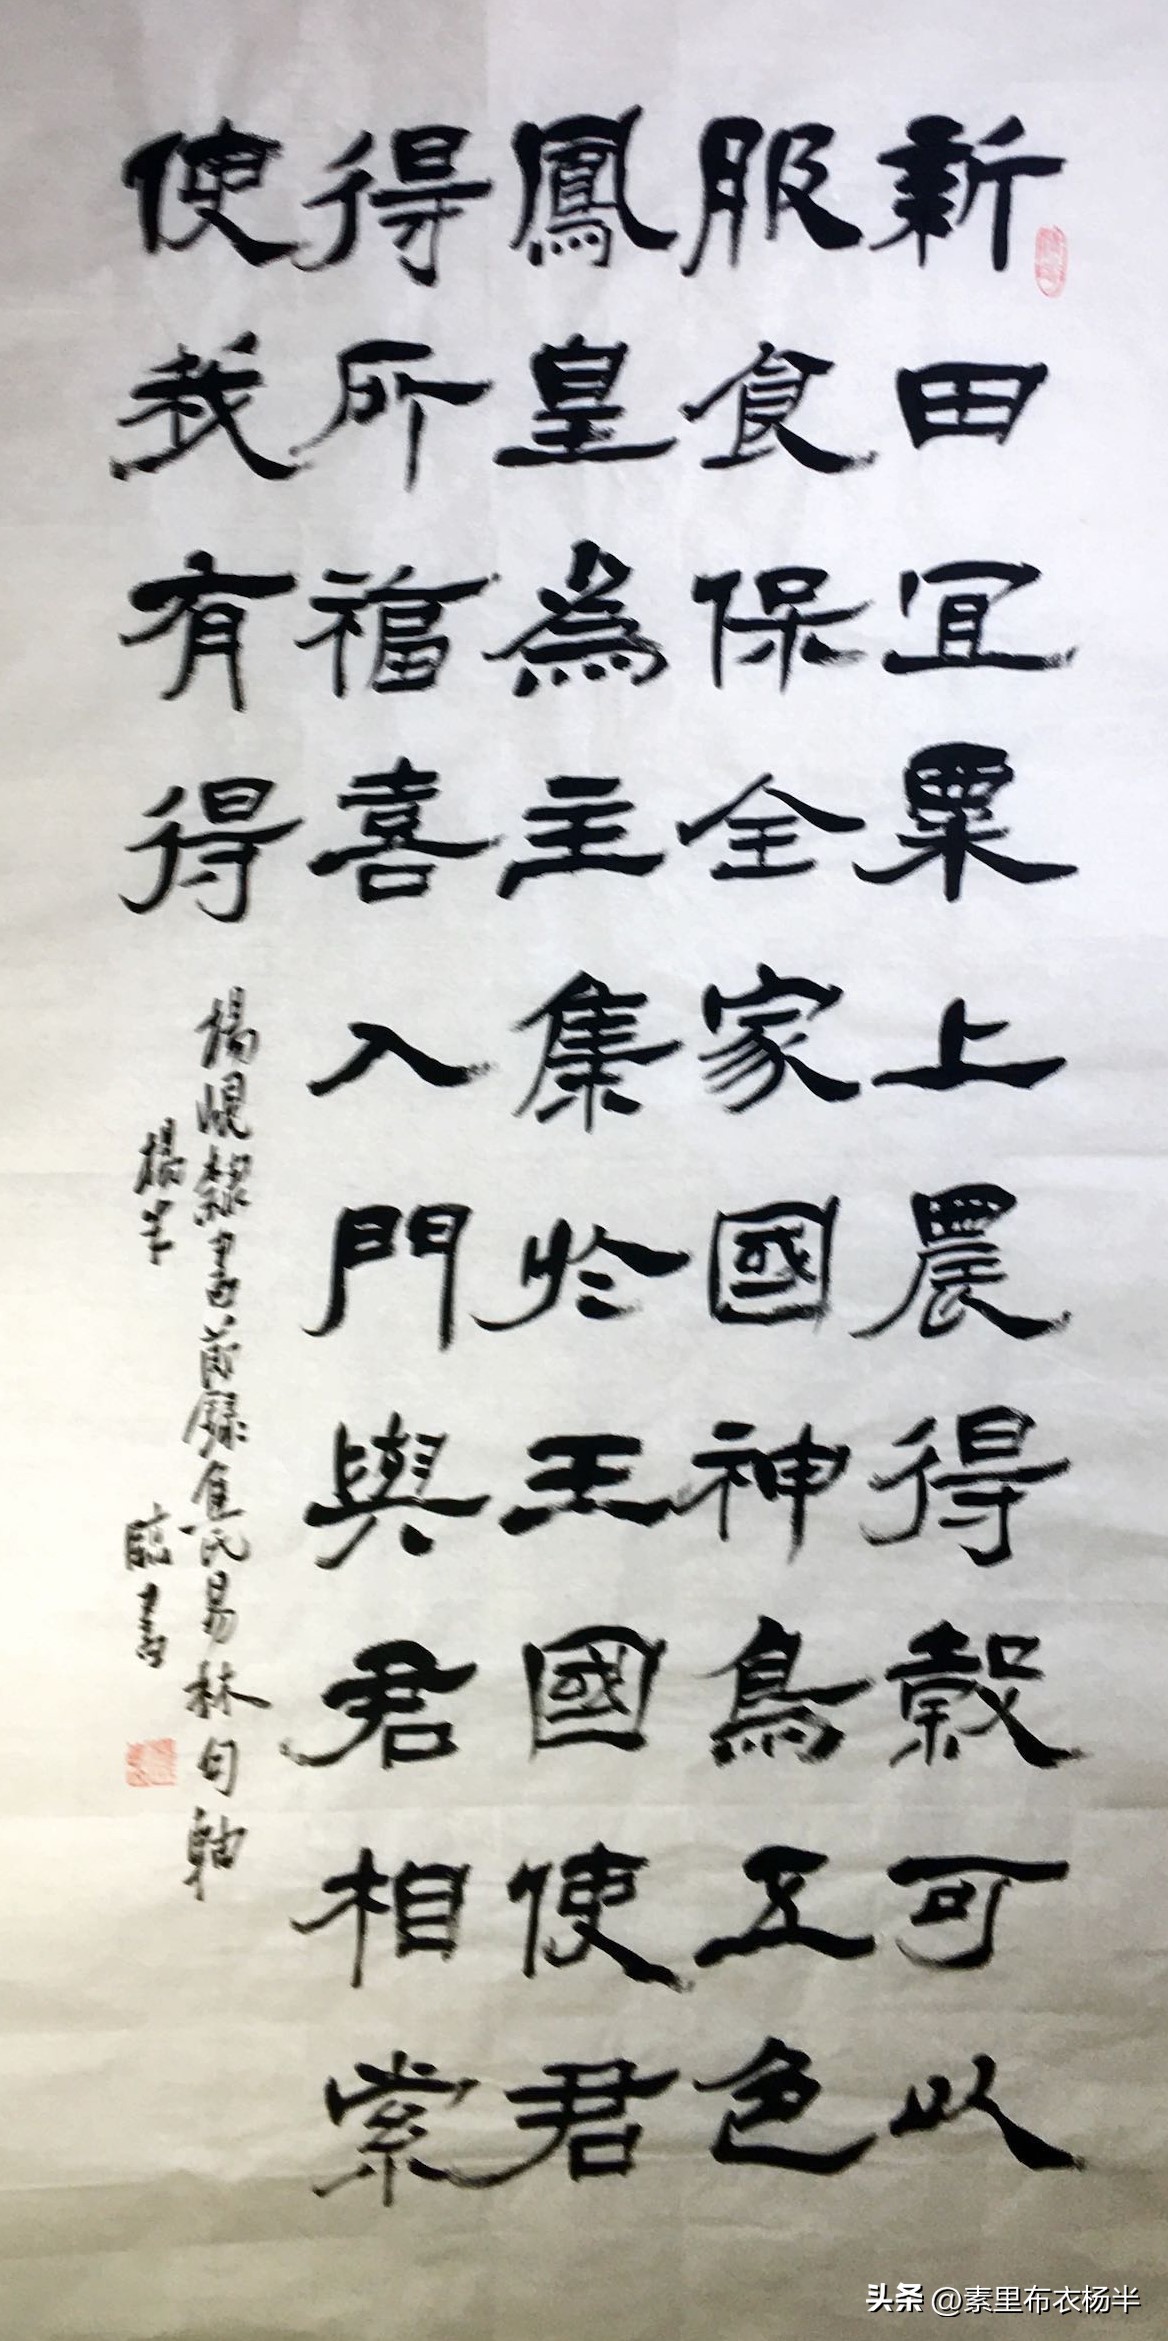 新田宜粟上農得穀可以
服食保全家國神鳥五色
鳳皇為主集於王國使君
得所福喜入門與君相索
使我有得
楊峴隸書節錄焦氏易林句軸
楊半 臨書
头条 @素里布衣杨半